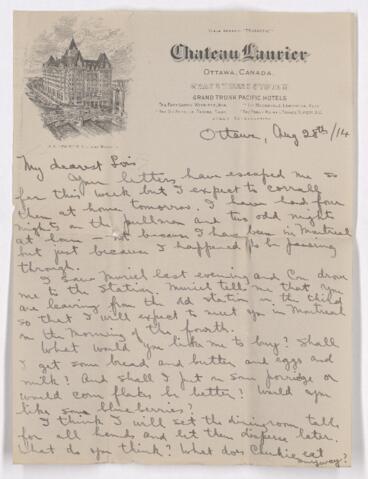 Chateau Laurier
Ottawa, Canada.
Grand Trunk Pacific Hotels
Ottawa, Aug 28th/14
My dearest Lois
Your letters have escaped me so
far this week but I expect to corrall
them at home tomorrow. I have had four
nights on the pullman and two odd nights
at home – not because I have been in Montreal
but just because I happened to be passing
through.
I saw Muriel last evening and Con drove
me to the station. Muriel tells me that you
are leaving from the old station on the third
so that I will expect to meet you in Montreal
on the morning of the fourth.
What would you like me to buy? Shall
I get some bread and butter and eggs and
milk? And shall I put on some porridge or
would corn flakes be better? Would you
like some blueberries?
I think I will set the diningroom table
for all hands and let them disperse later.
What do you think? What does eat
anyway?